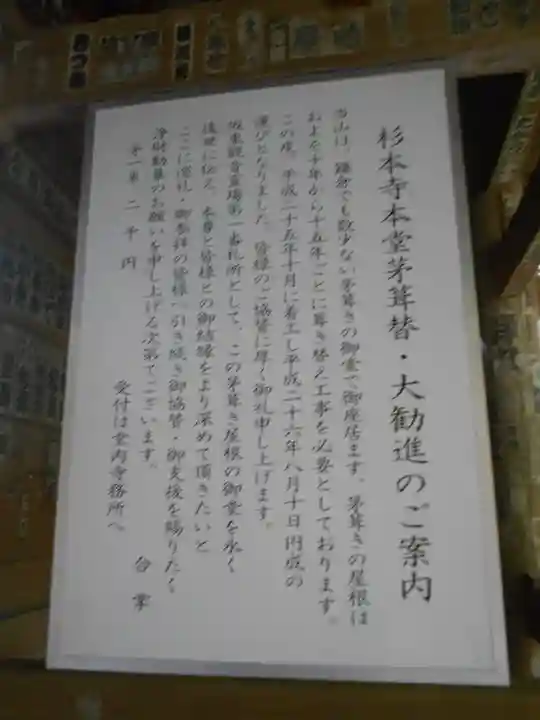 杉本寺本堂茅葺替・大勧進のご案内
当山は、鎌倉でも数少ない茅葺きの御堂で御座居ます。茅葺きの屋根は
およそ十年から十五年ごとに葺き替え工事を必要としております。
この度、平成二十五年十月に着工し平成二十六年八月十日円成の
運びとなりました。皆様のご協賛に厚く御礼申し上げます。
坂東観音霊場第一番札所として、この茅葺き屋根の御堂を永く
後世に伝え、本尊と皆様との御結縁をより深めて頂きたいと
ここに巡礼・御参拝の皆様へ引き続き御協賛・御支援を賜りたく
浄財勧募のお願いを申し上げる次第でございます。
合掌
茅一束 二千円
受付は堂内寺務所へ